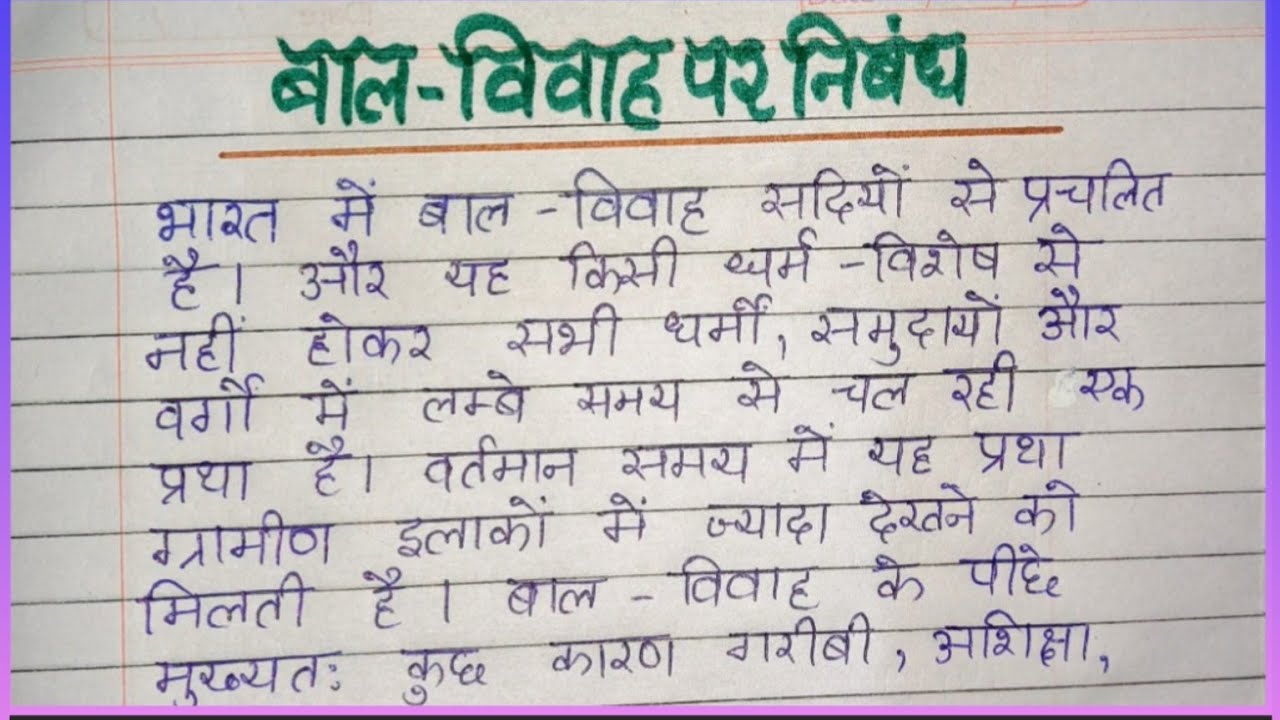 बाल-विवाह पर निबंध
भारत में बाल-विवाह सदियों से प्रचलित
है। और यह किसी धर्म-विशेष से
नहीं होकर सभी धर्मों, समुदायों और
वर्गों में लम्बे समय से चल रही एक
प्रथा है। वर्तमान समय में यह प्रथा
ग्रामीण इलाकों में ज्यादा देखने को
मिलती है। बाल-विवाह के पीछे
मुख्यतः कुछ कारण गरीबी, अशिक्षा,